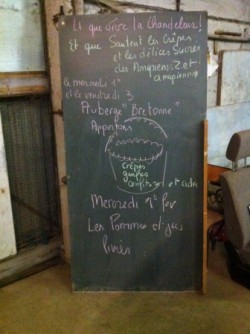 Et que vive la Chandeleur!
Et que Sautent les Crêpes
et les délices Sucrés
des
le mercredi 1er
et le vendredi 3
Auberge "Bretonne"
Apportons
Crêpes
gaufres
confitures et cidre
Mercredi 1er Fev
Les Pommes et jus
livrés